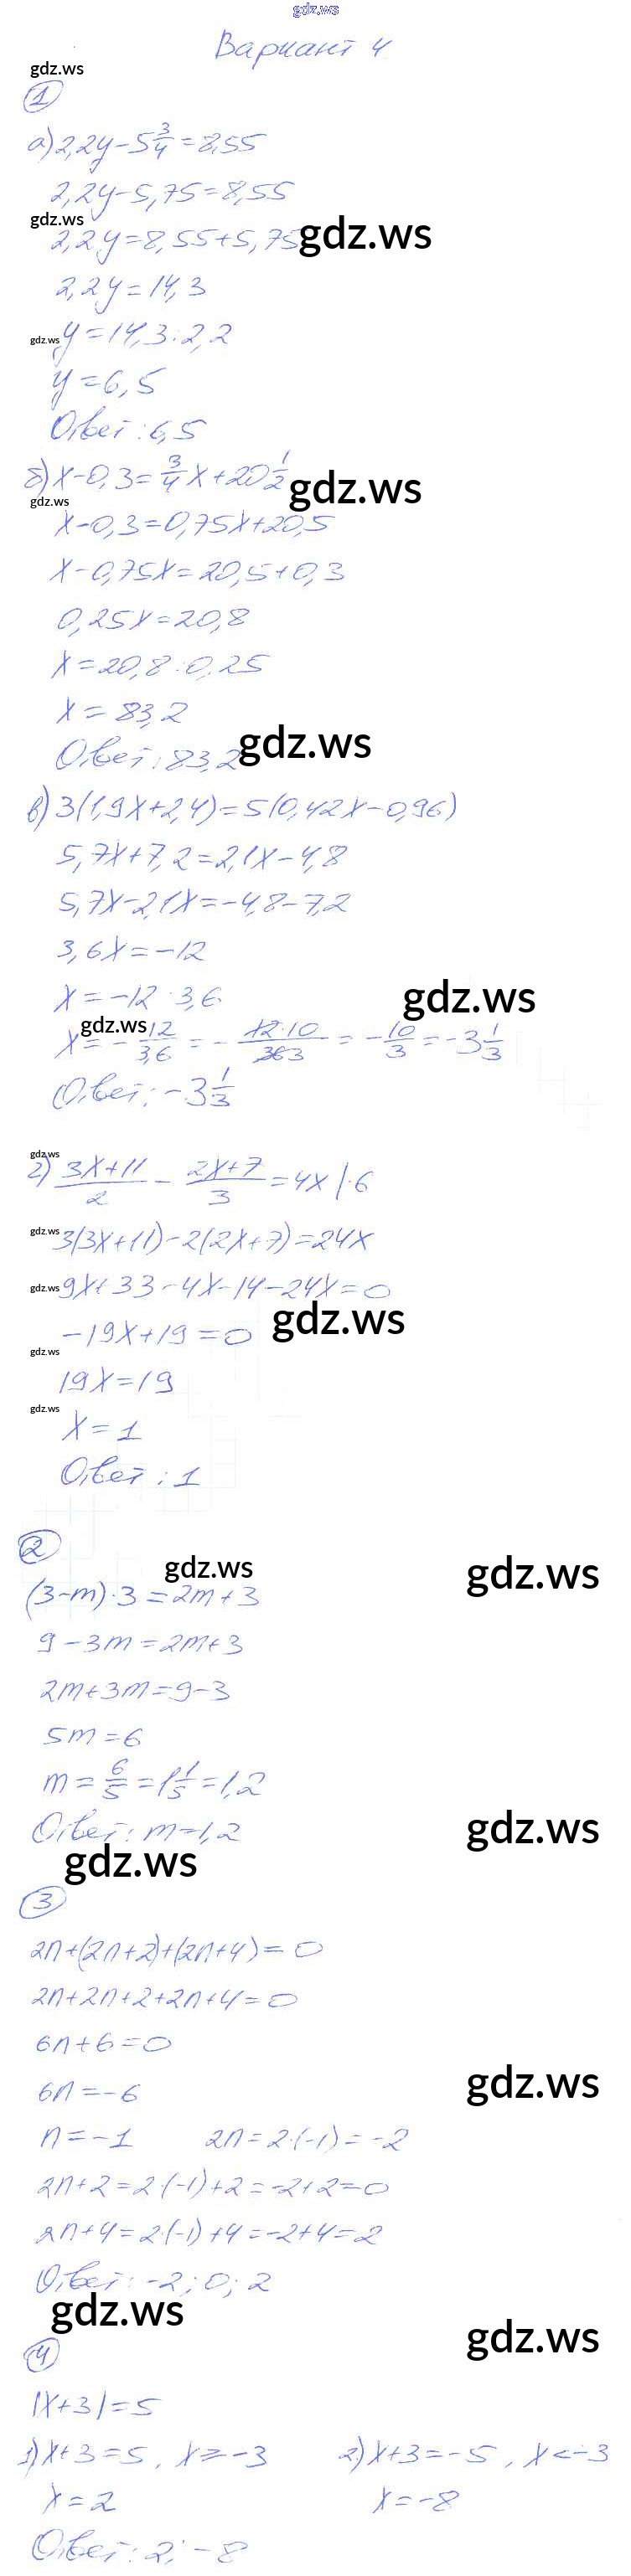 gdz.ws
Вариант 4
gdz.ws
1
а) 2,2y - 5 3/4 = 8,55
2,2y - 5,75 = 8,55
gdz.ws
2,2y = 8,55 + 5,75
gdz.ws
2,2y = 14,3
gdz.ws
y = 14,3 : 2,2
y = 6,5
Ответ: 6,5
б) x - 0,3 = 3/4 x + 20 1/2
gdz.ws
gdz.ws
x - 0,3 = 0,75x + 20,5
x - 0,75x = 20,5 + 0,3
0,25x = 20,8
x = 20,8 : 0,25
x = 83,2
Ответ: 83,2
gdz.ws
в) 3(1,9x + 2,4) = 5(0,42x - 0,96)
5,7x + 7,2 = 2,1x - 4,8
5,7x - 2,1x = -4,8 - 7,2
3,6x = -12
x = -12 : 3,6
gdz.ws
gdz.ws
x = - 12/3,6 = - 12·10/36 3 = - 10/3 = -3 1/3
Ответ: -3 1/3
gdz.ws
г) (3x+11)/2 - (2x+7)/3 = 4x |·6
gdz.ws
3(3x+11) - 2(2x+7) = 24x
gdz.ws
9x + 33 - 4x - 14 - 24x = 0
gdz.ws
-19x + 19 = 0
gdz.ws
19x = 19
gdz.ws
x = 1
Ответ: 1
2
gdz.ws
gdz.ws
(3-m)·3 = 2m + 3
9 - 3m = 2m + 3
2m + 3m = 9 - 3
5m = 6
m = 6/5 = 1 1/5 = 1,2
Ответ: m = 1,2
gdz.ws
gdz.ws
3
2n + (2n+2) + (2n+4) = 0
2n + 2n + 2 + 2n + 4 = 0
6n + 6 = 0
6n = -6
gdz.ws
n = -1 2n = 2·(-1) = -2
2n + 2 = 2·(-1) + 2 = -2 + 2 = 0
2n + 4 = 2·(-1) + 4 = -2 + 4 = 2
Ответ: -2; 0; 2
gdz.ws
gdz.ws
4
|x+3| = 5
1) x+3 = 5, x ≥ -3 2) x+3 = -5, x < -3
x = 2 x = -8
Ответ: 2; -8